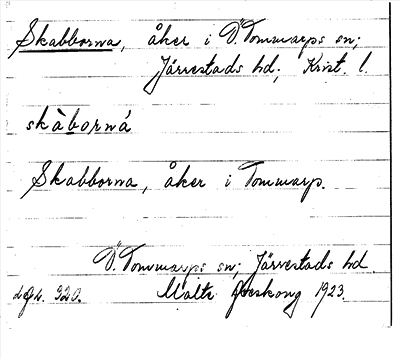 Skabborna, åker i Ö. Tommarps sn;
Järrestads hd; Krist. l.
skàborná
Skabborna, åker i Tommarp.
Ö. Tommarps sn; Järrestads hd.
Malte 1923.
320.